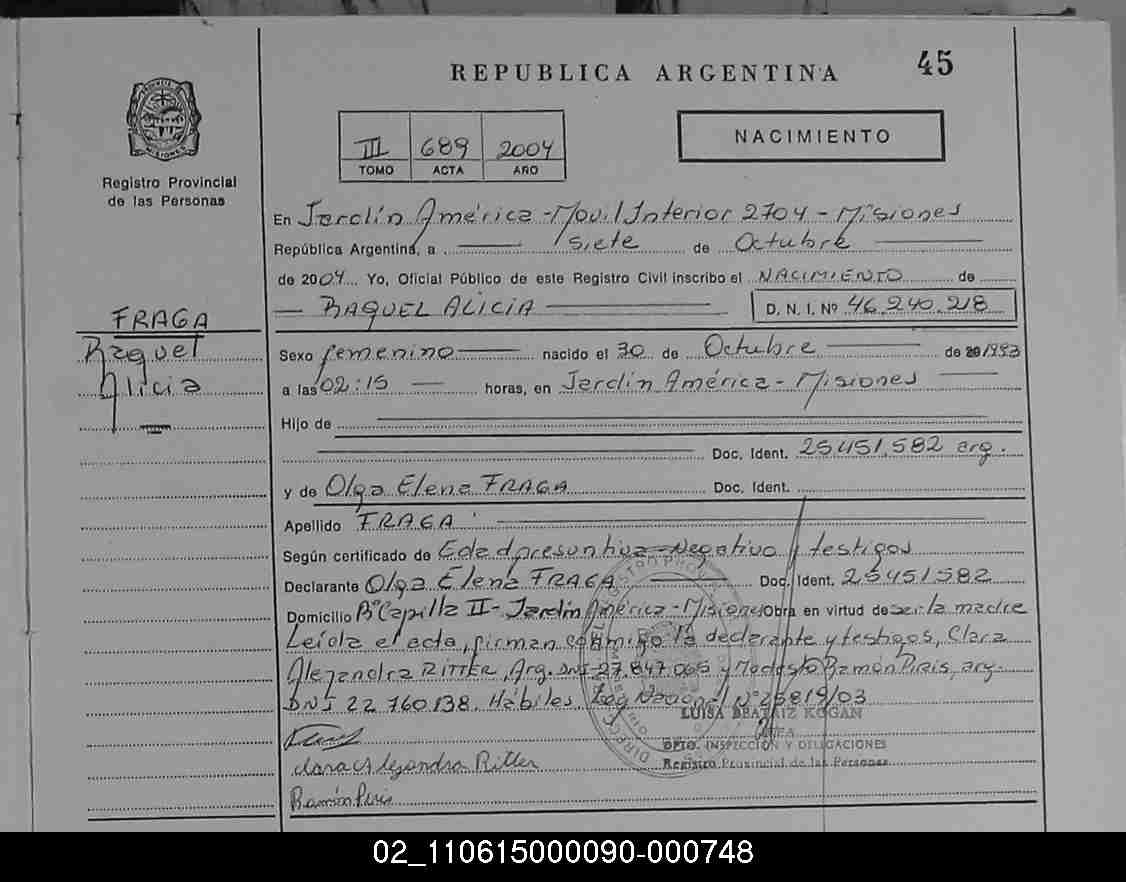 45
REPUBLICA ARGENTINA
PROVINCIA DE
MISIONES
Registro Provincial
de las Personas
III 689 2004
TOMO ACTA AÑO
NACIMIENTO
En Jardín América - Movil Interior 2704 - Misiones
República Argentina, a siete de Octubre
de 2004 Yo, Oficial Público de este Registro Civil inscribo el NACIMIENTO de
RAQUEL ALICIA D. N. I. Nº 46.240.218
FRAGA
Raquel
Alicia
Sexo femenino nacido el 30 de Octubre de 1993
a las 02:15 horas, en Jardín América - Misiones
Hijo de
Doc. Ident. 25451.582 arg.
y de Olga Elena FRAGA Doc. Ident.
Apellido FRAGA
Según certificado de Edad presuntiva - Negativo y testigos
Declarante Olga Elena FRAGA Doc. Ident. 25451582
Domicilio Bº Capilla II - Jardín América - Misiones Obra en virtud de ser la madre
Leída el acta, firman conmigo la declarante y testigos, Clara
Alejandra RITTER, Arg. DNI 27.847.065 y Modesto Ramón Piris, arg.
DNI 22 760138. Hábiles. Ley Nacional Nº 25819/03
LUISA BEATRIZ KOGAN
DPTO. INSPECCIÓN Y DELEGACIONES
Registro Provincial de las Personas
Clara Alejandra Ritter
Ramón Piris
02_110615000090-000748